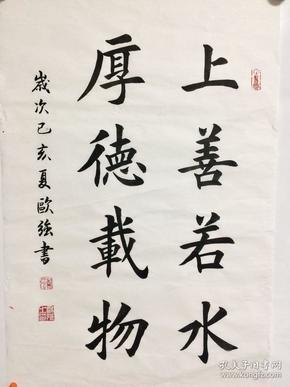 上善若水
厚德載物
歲次己亥夏歐強書
孔夫子旧书网